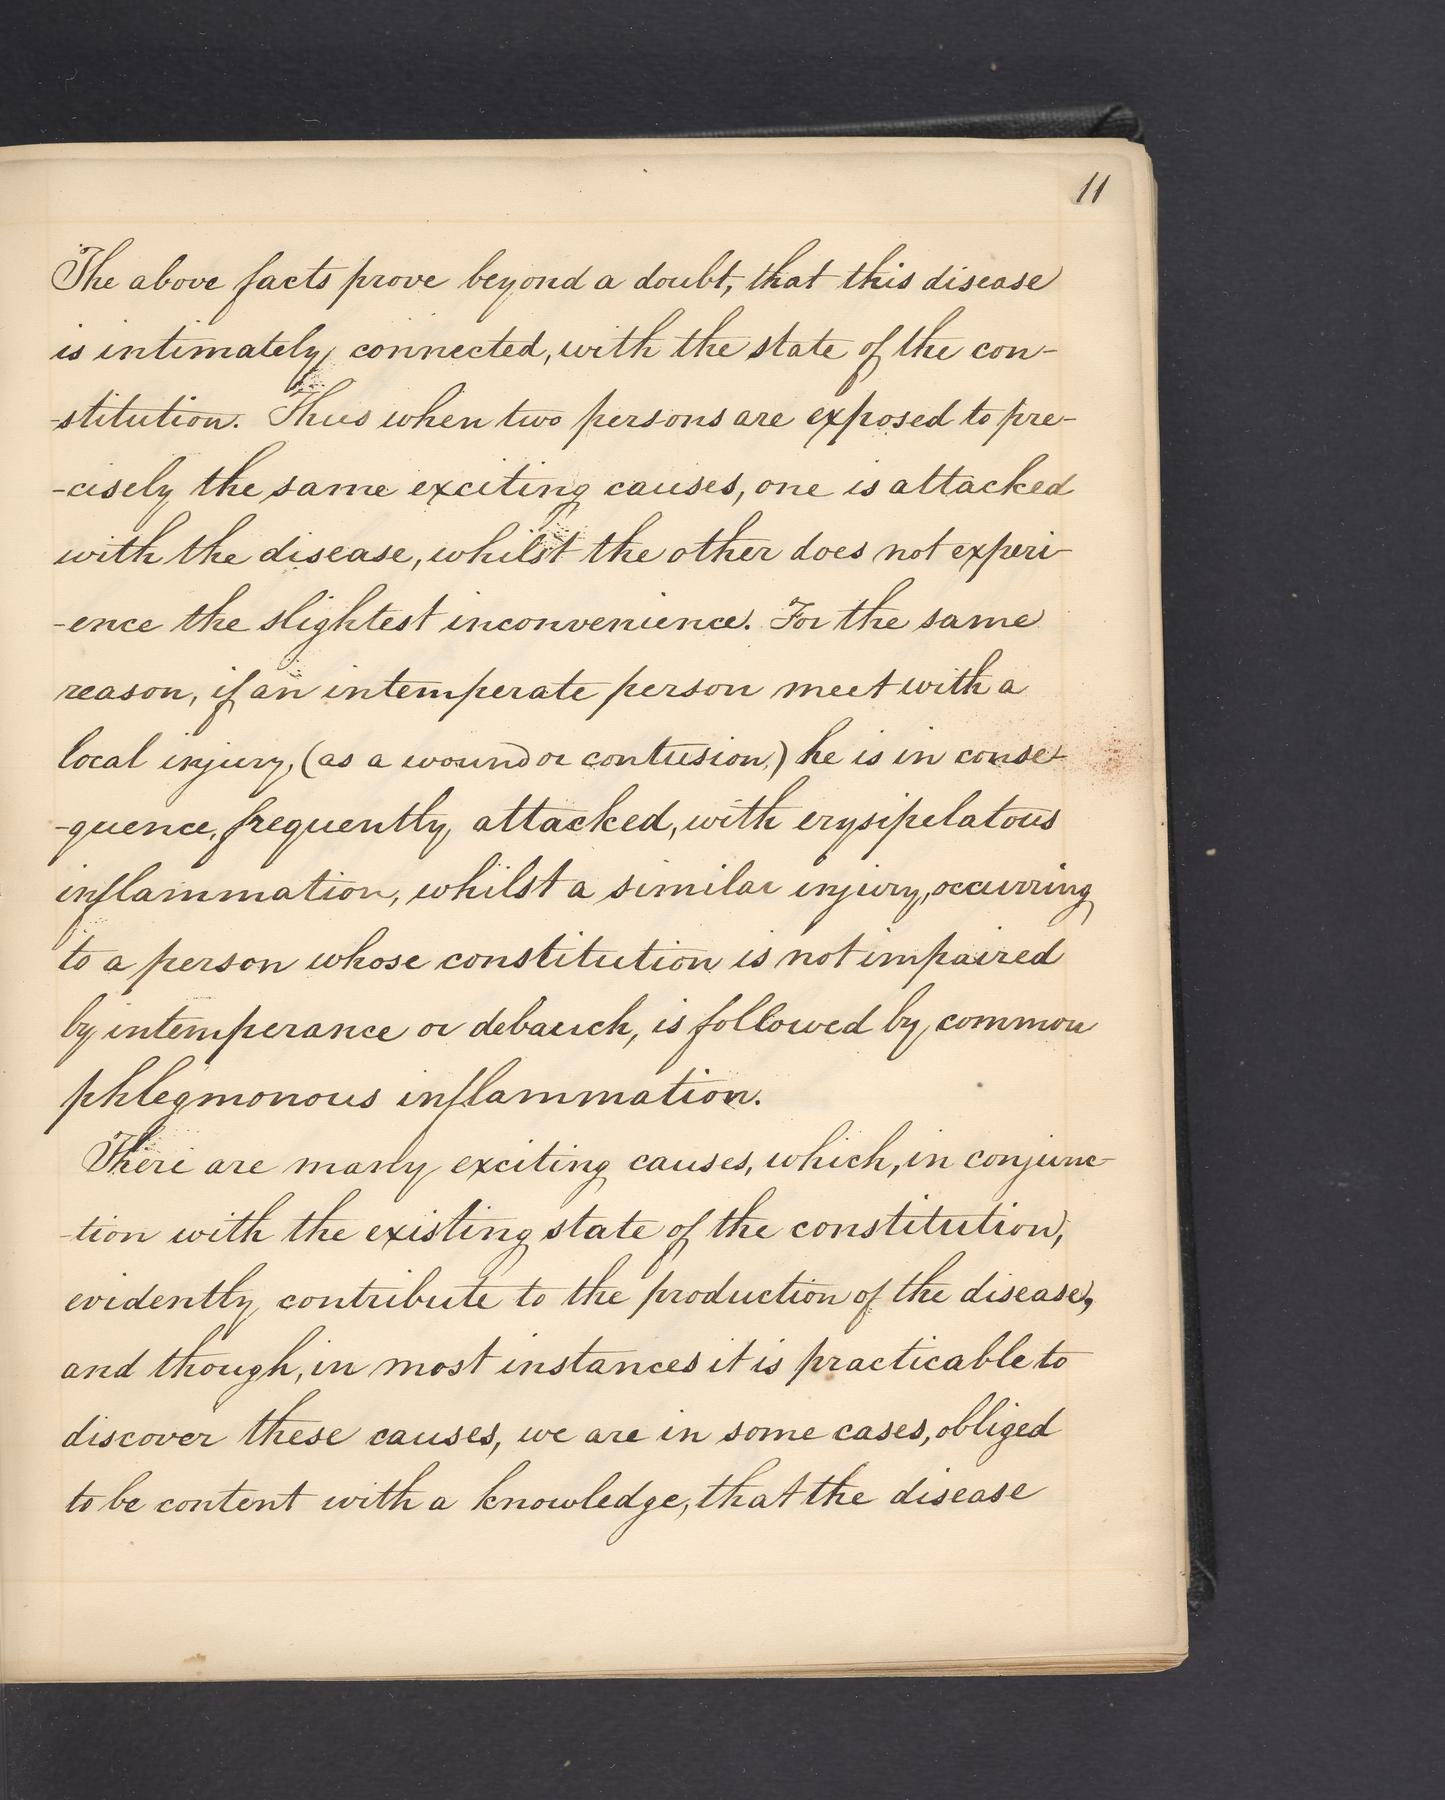 11
The above facts prove beyond a doubt, that this disease
is intimately connected, with the state of the con-
-stitution. Thus when two persons are exposed to pre-
-cisely the same exciting causes, one is attacked
with the disease, whilst the other does not experi-
-ence the slightest inconvenience. For the same
reason, if an intemperate person meet with a
local injury, (as a wound or contusion,) he is in conse-
-quence, frequently, attacked, with erysipelatous
inflammation, whilst a similar injury, occurring
to a person whose constitution is not impaired
by intemperance or debauch, is followed by common
phlegmonous inflammation.
There are many exciting causes, which, in conjunc-
-tion with the existing state of the constitution,
evidently contribute to the production of the disease,
and though, in most instances it is practicable to
discover these causes, we are in some cases, obliged
to be content with a knowledge, that the disease